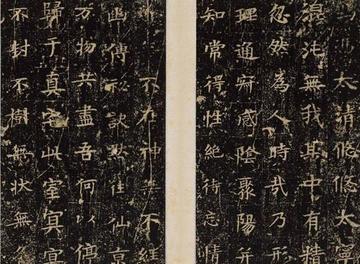 太清悠悠太寧
混沌無我其中有精
忽然為人時哉乃形
理通寂感陰聚陽并
知常得性絕待忘情
不在神不經
幽傳秘訣默往仙京
万物共盡吾何以停
歸于真宅此室冥冥
不封不樹無狀無名